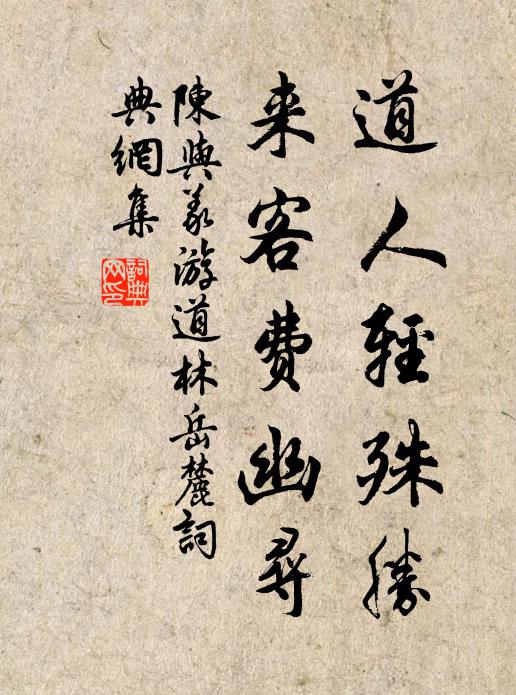 道人輕殊勝
来客費幽尋
陳與義游道林岳麓詞
典網集
詞典网印